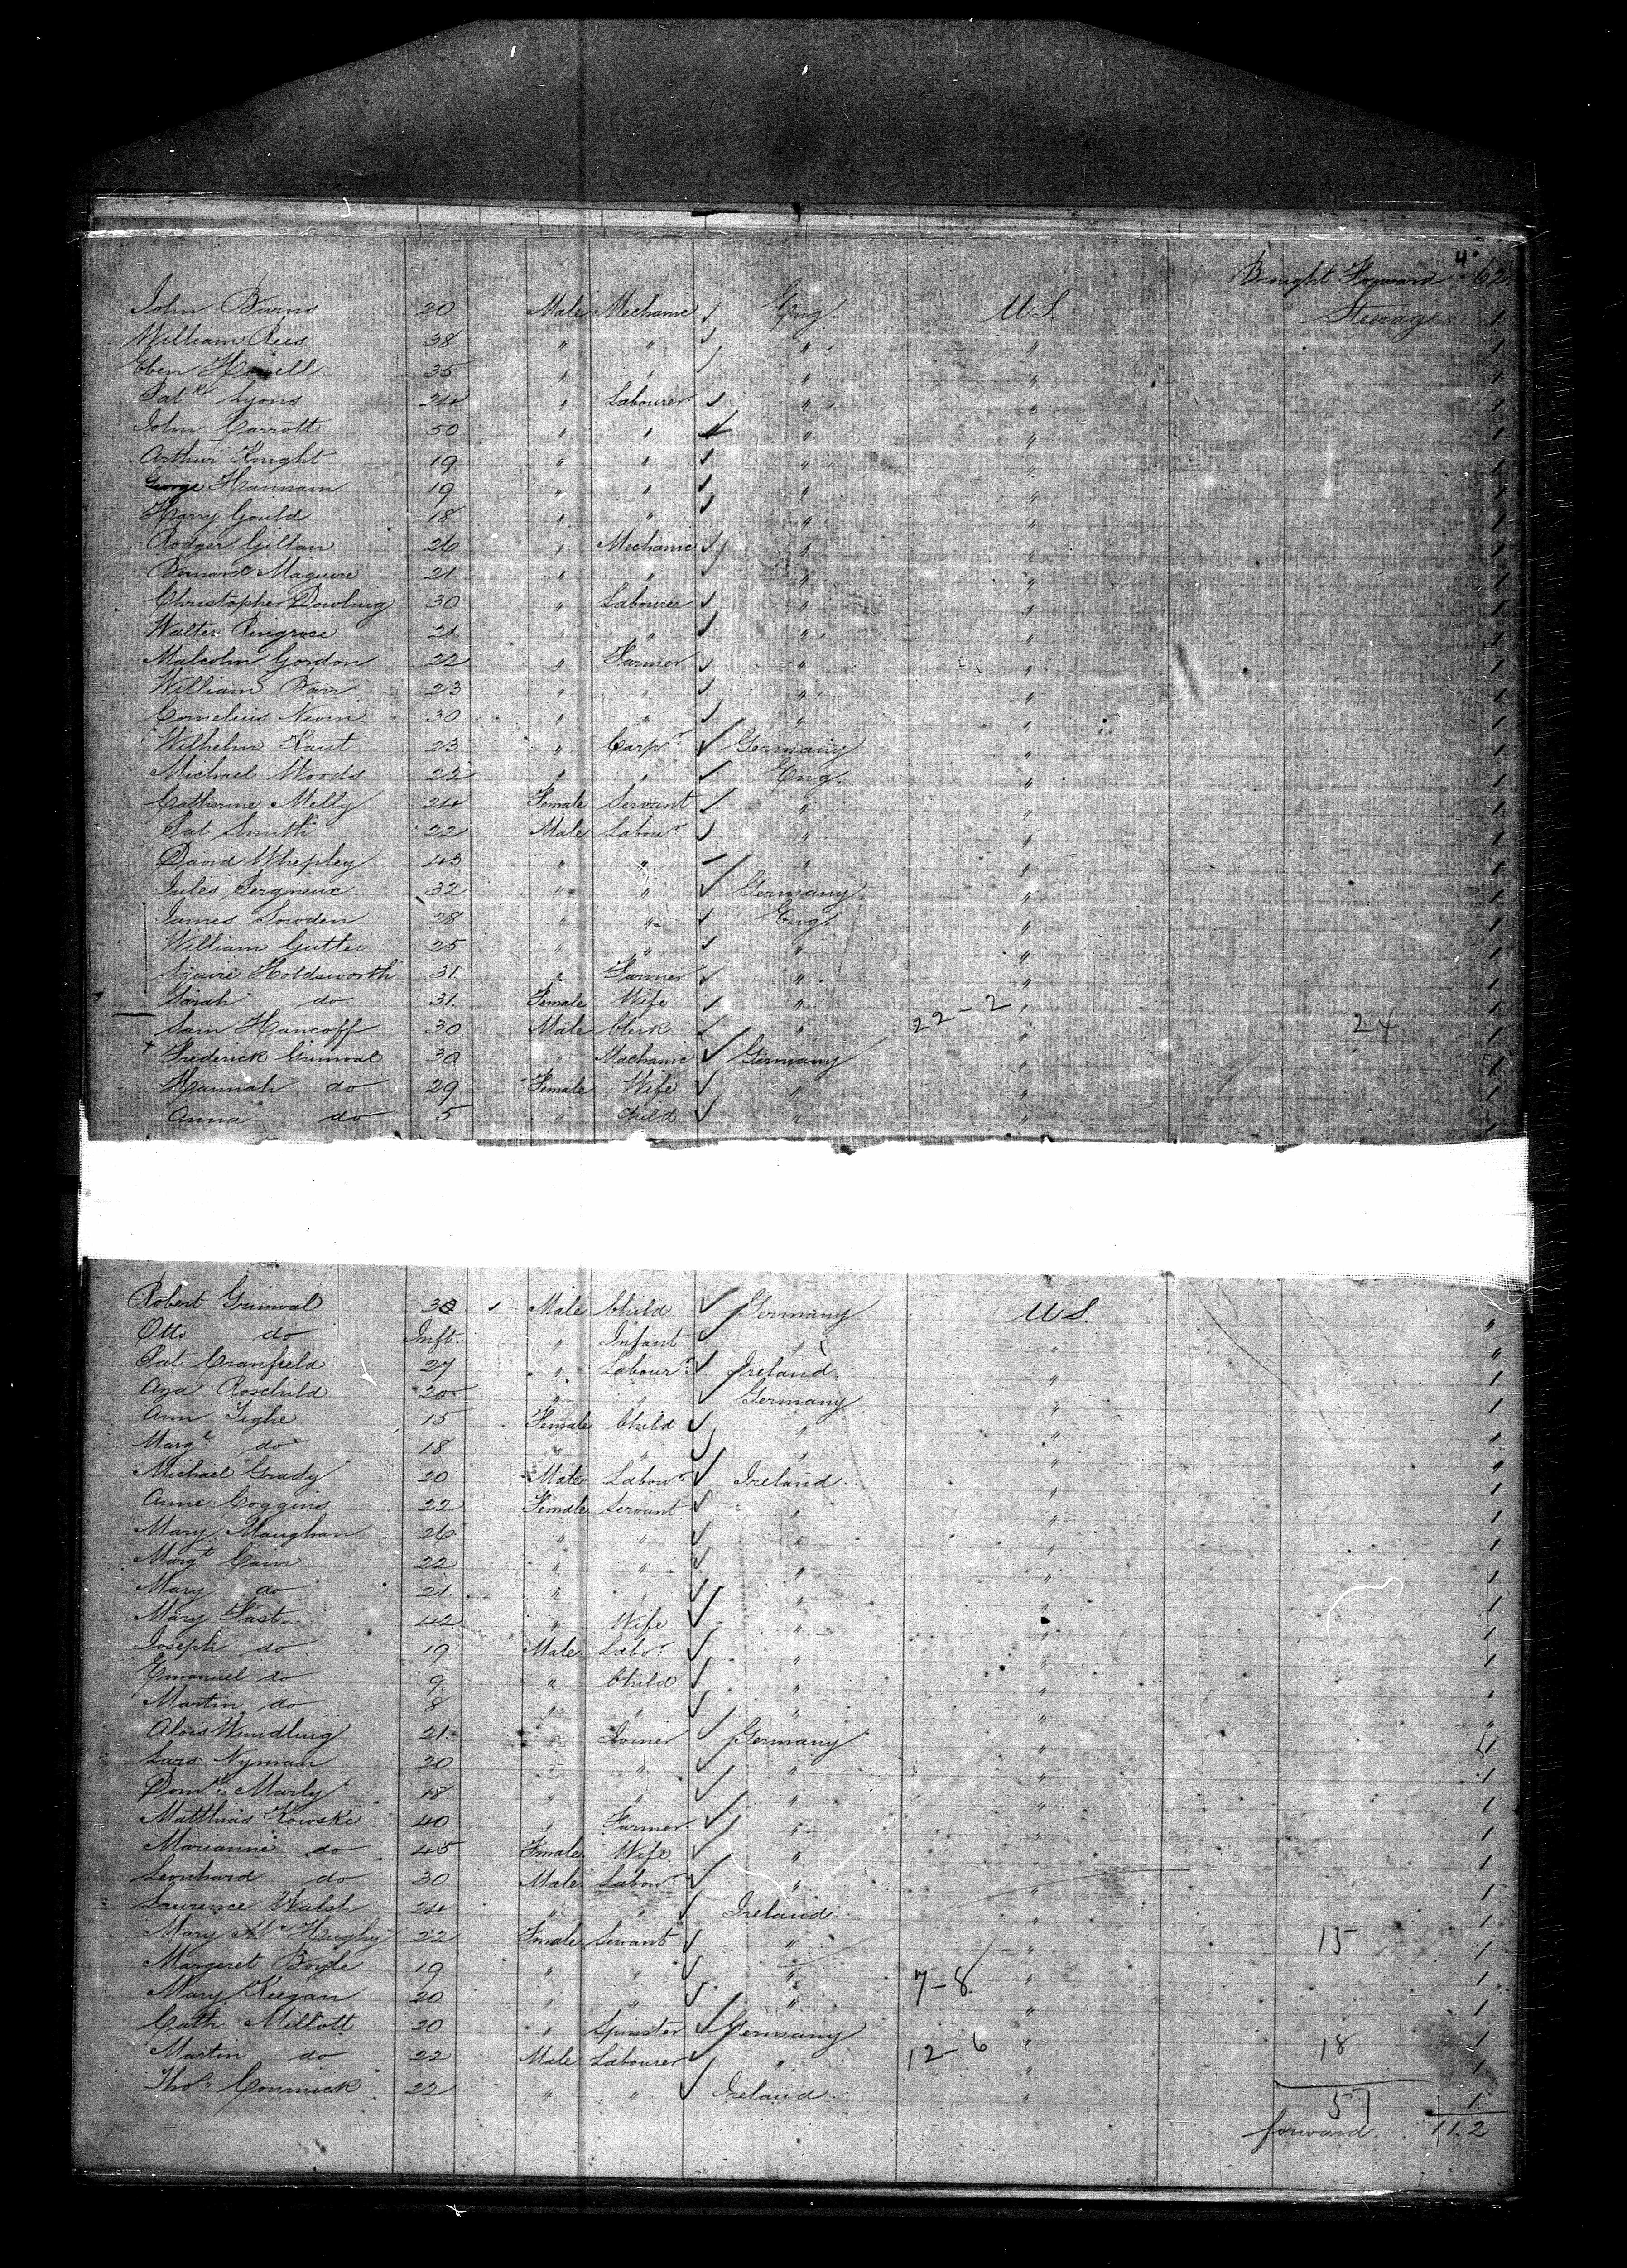 4
Brought Forward 62
John Burns 20 Male Mechanic ✓ Eng. U S. Steerage 1
William Rees 38 " " ✓ " " 1
Eben 35 " " ✓ " " 1
Patk Lyons 24 " Labourer ✓ " " 1
John Carrott 50 " " ✓ " " 1
Arthur Knight 19 " " ✓ " " 1
George Hannam 19 " " ✓ " " 1
Harry Gould 18 " " ✓ " " 1
Rodger Gillan 26 " Mechanic ✓ " " 1
Bernard Maguire 21 " " ✓ " " 1
Christopher Dowling 30 " Labourer ✓ " " 1
Walter Ringrose 21 " " ✓ " " 1
Malcolm Gordon 22 " Farmer ✓ " " 1
William Barr 23 " " ✓ " " 1
Cornelius Nevin 30 " " ✓ " " 1
Wilhelm Kaut 23 " Carpr ✓ Germany " 1
Michael Woods 22 " " ✓ Eng. " 1
Catherine Melly 24 Female Servant ✓ " " 1
Pat Smith 22 Male Labour ✓ " " 1
David Whepley 43 " " " " 1
Jules 32 " " ✓ Germany " 1
James Sowden 28 " " ✓ Eng. " 1
William Gutter 25 " " ✓ " " 1
Squire Holdsworth 31 " Farmer ✓ " " 1
Sarah do 31 Female Wife ✓ " 22-2 " 1
Sam Hancoff 30 Male Clerk ✓ " " 24 1
Frederick Grunwal 30 " Mechanic ✓ Germany " 1
Hannah do 29 Female Wife ✓ " " 1
Anna do 5 " Child ✓ " " 1
Robert Grunwal 3 ✓ Male Child ✓ Germany U S. "
Otto do Inft. " Infant ✓ " " "
Pat Cranfield 27 " Labourr ✓ Ireland " 1
Roschild 20 " " Germany " 1
Ann Tighe 15 Female Child ✓ " " 1
Margt do 18 " " ✓ " " "
Michael Grady 20 Male Labour ✓ Ireland " 1
Anne Coggins 22 Female Servant ✓ " " 1
Mary Maughan 26 " " ✓ " " 1
Margt Cain 22 " " ✓ " " 1
Mary do 21 " " ✓ " " 1
Mary Fast 42 " Wife ✓ " " 1
Joseph do 19 Male Labr ✓ " " 1
Emanuel do 9 " Child ✓ " " 1
Martin do 8 " " ✓ " " "
Alois Wundling 21 " Joiner ✓ Germany " 1
Lars Nyman 20 " " ✓ " " 1
Marly 18 " " ✓ " " 1
Matthias Kowske 40 " Farmer ✓ " " 1
Marianne do 45 Female Wife ✓ " " 1
Leonhard do 30 Male Labour ✓ " " 1
Laurence Walsh 24 " " ✓ Ireland " 1
Mary Mc Hughy 22 Female Servant ✓ " " 15 1
Margeret Boyle 19 " " ✓ " 7-8 " 1
Mary Keegan 20 " " ✓ " " 1
Cath Millott 20 " Spinster ✓ Germany " 18 1
Martin do 22 Male Labourer ✓ " 12-6 " 1
Thos Cormick 22 " " ✓ Ireland " 1
57
forward 112